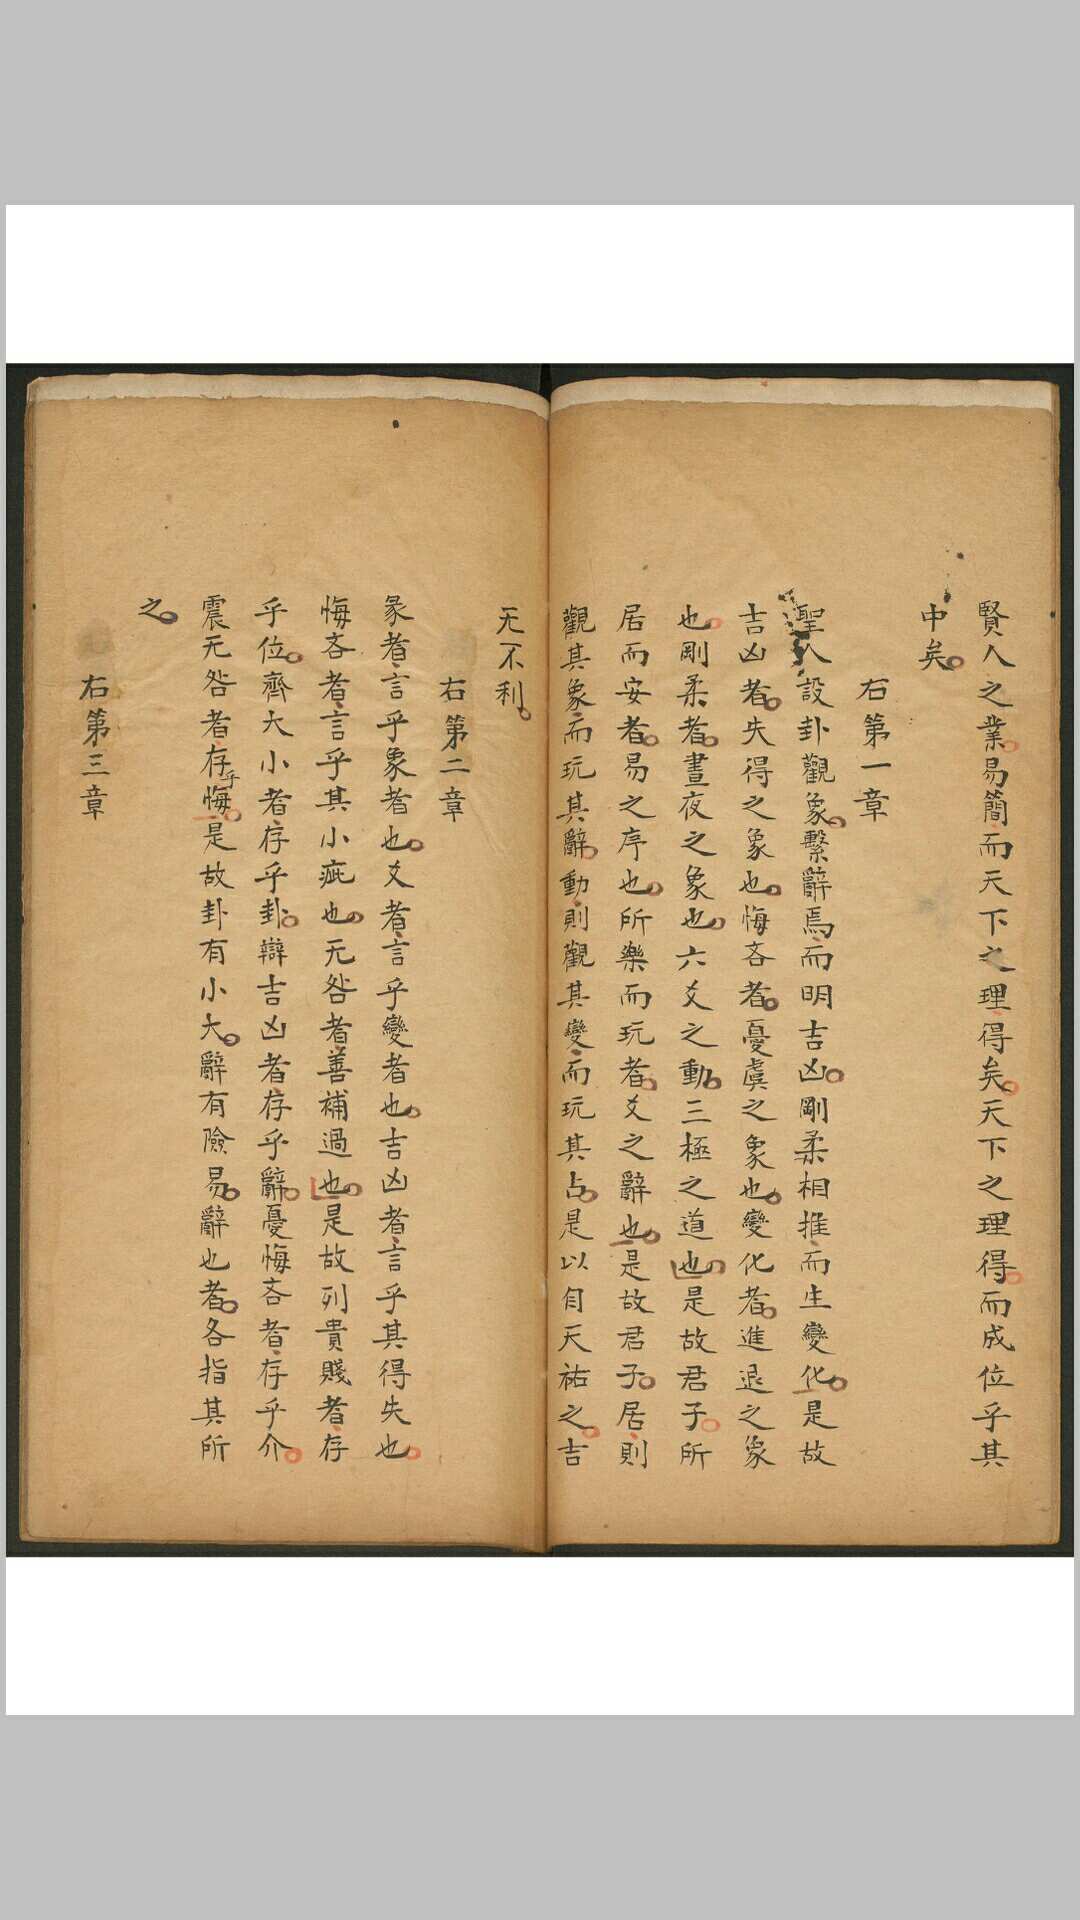 賢人之業易簡而天下之理得矣天下之理得而成位乎其
中矣
右第一章
聖人設卦觀象繫辭焉而明吉凶剛柔相推而生變化是故
吉凶者失得之象也悔吝者憂虞之象也變化者進退之象
也剛柔者晝夜之象也六爻之動三極之道也是故君子所
居而安者易之序也所樂而玩者爻之辭也是故君子居則
觀其象而玩其辭動則觀其變而玩其占是以自天祐之吉
无不利
右第二章
彖者言乎象者也爻者言乎變者也吉凶者言乎其得失也
悔吝者言乎其小疵也无咎者善補過也是故列貴賤者存
乎位齊大小者存乎卦辯吉凶者存乎辭憂悔吝者存乎介
震无咎者存乎悔是故卦有小大辭有險易辭也者各指其所
之
右第三章